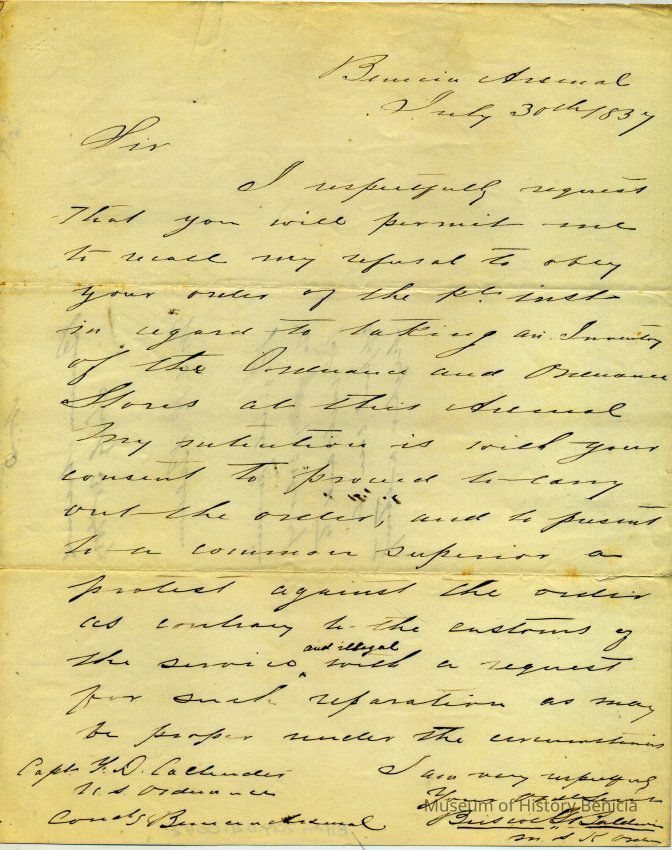 Benicia Arsenal
July 30th 1857
Sir
I respectfully request
That you will permit me
to recall my refusal to obey
your order of the inst
in regard to taking an Inventory
of the Ordnance and Ordnance
Stores at this Arsenal
My intention is with your
consent to proceed to carry
out the order, and to present
to a common superior a
protest against the order
as contrary to the customs of
and illegal
the service ^ with a request
for such reparation as may
be proper under the circumstances
I am very respectfully
Your
Briscoe G Baldwin
M. S. K Ordn
Capt F. D. Callender
U. S Ordnance
Comdg Benicia Arsenal
Museum of History Benicia